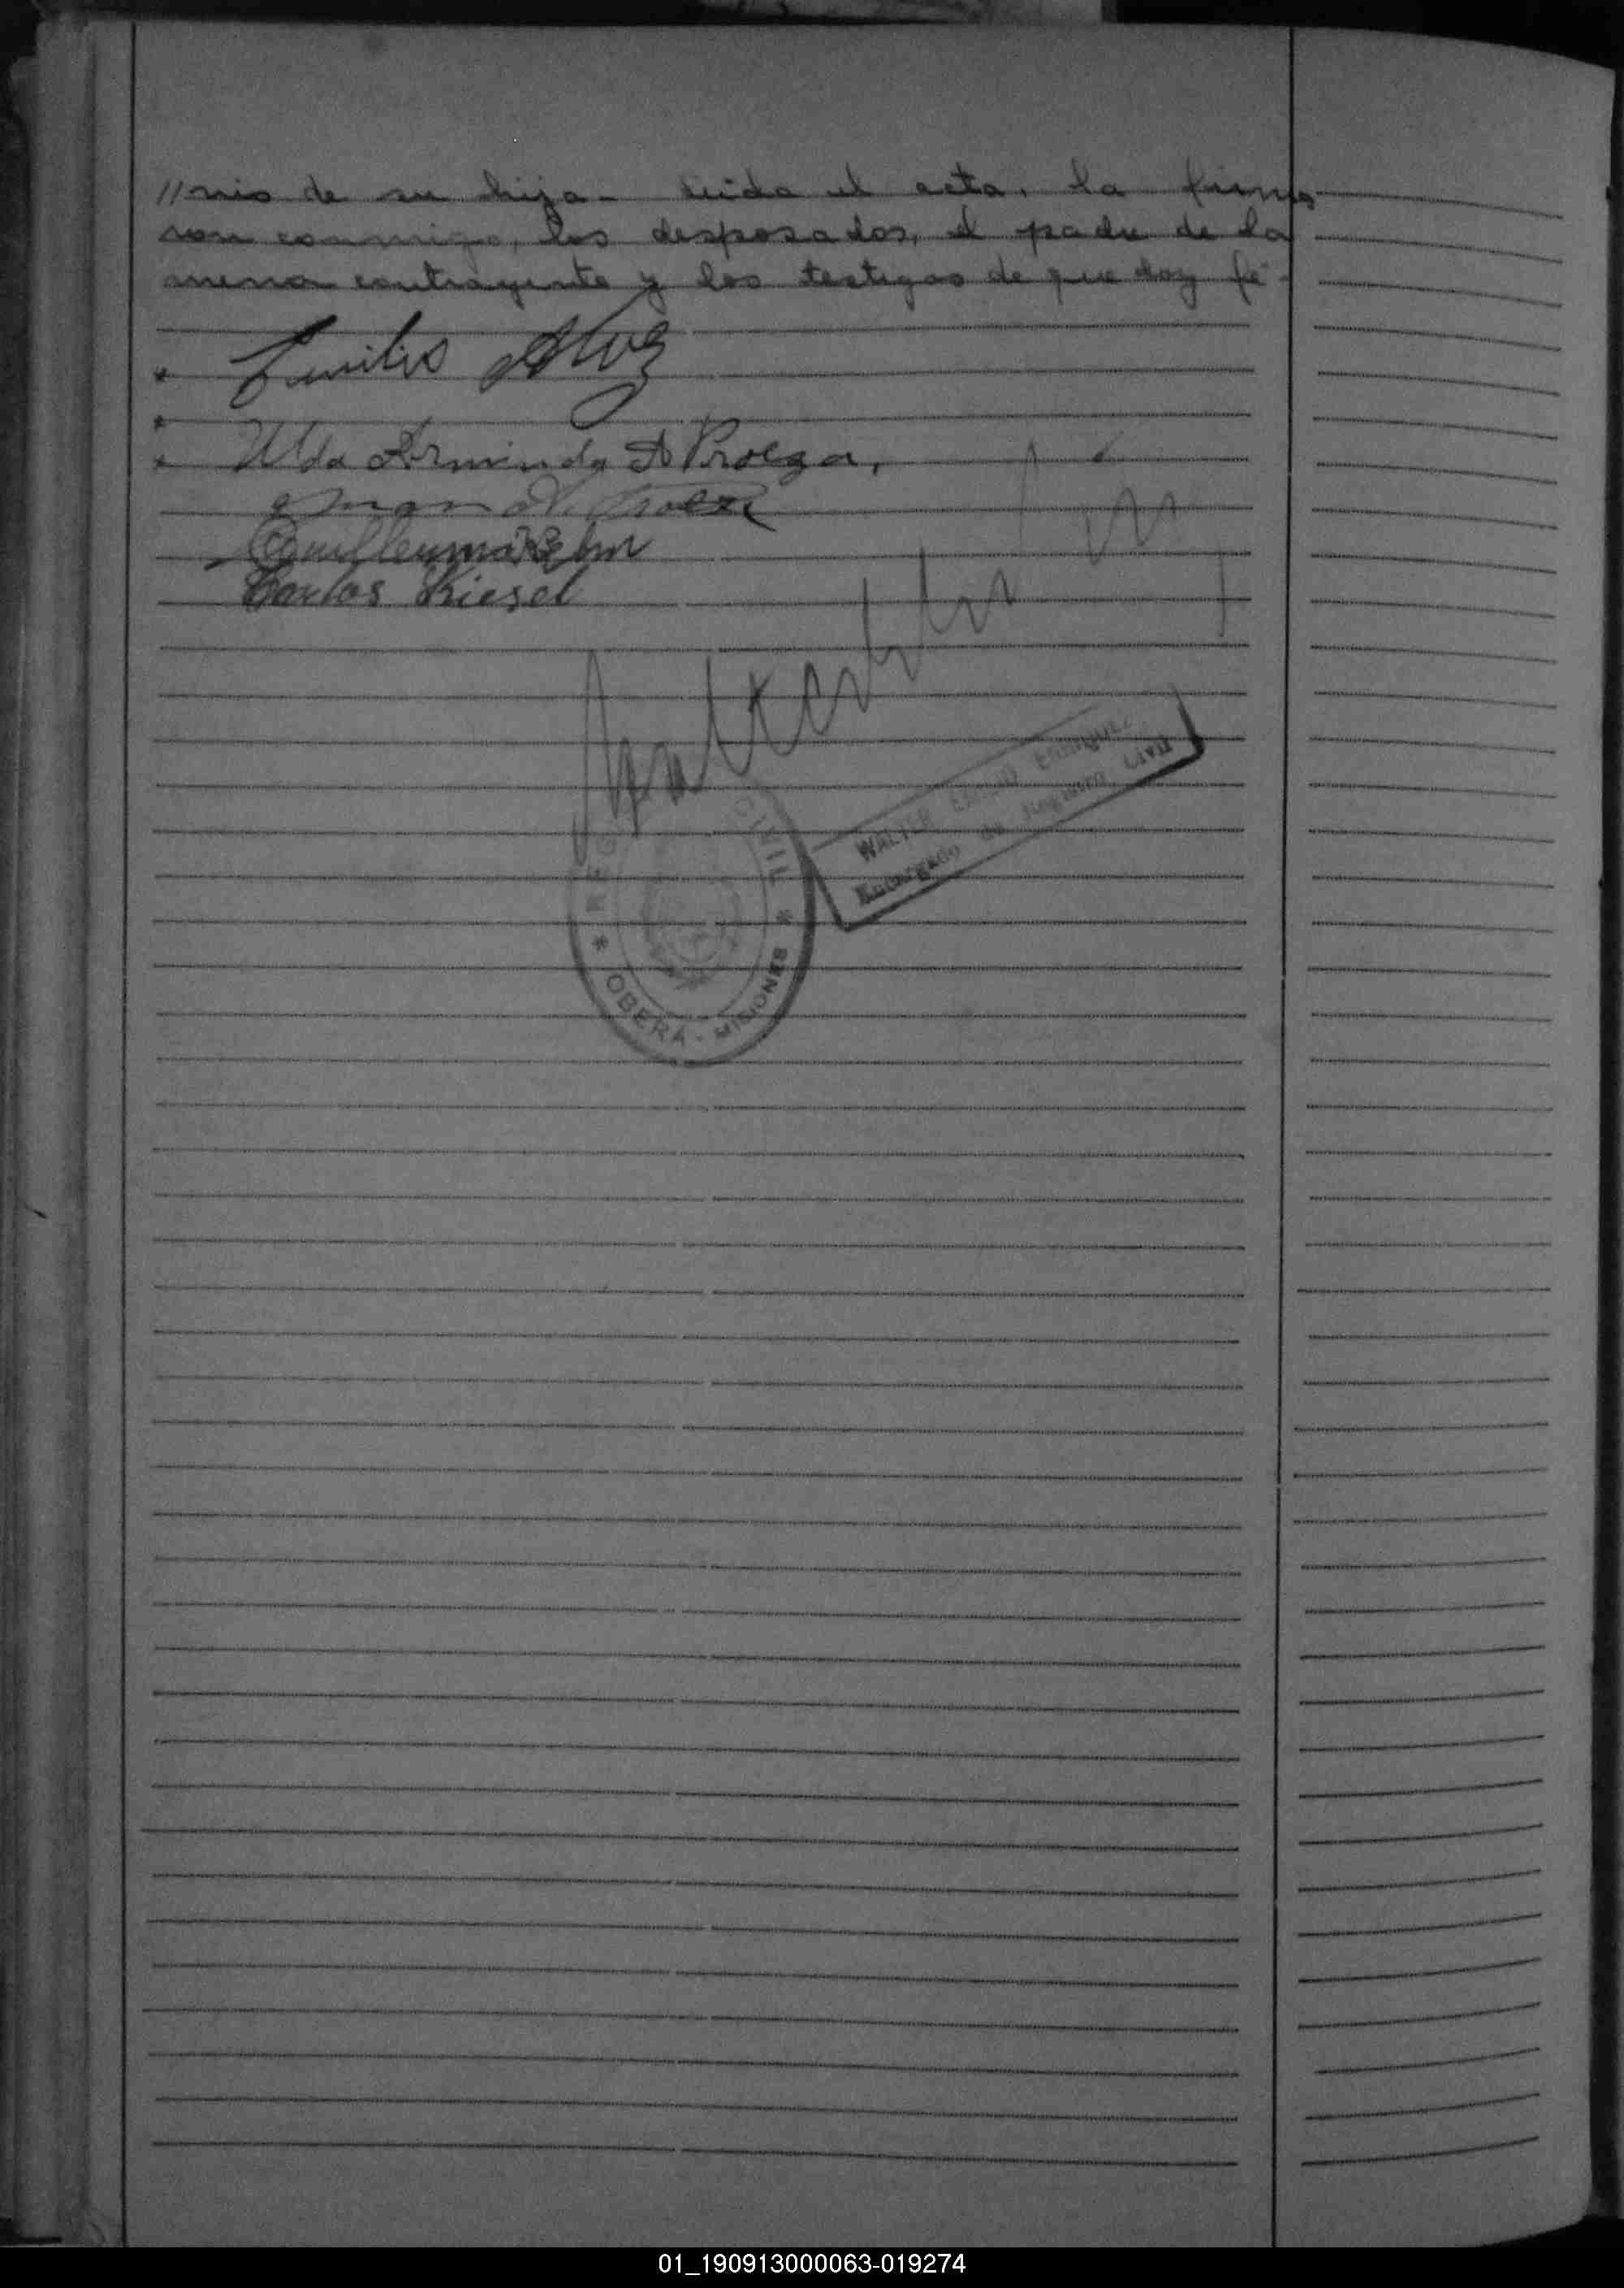 //nio de su hija - Leida el acta, la firma
ron conmigo, los desposados, el padre de la
menor contrayente y los testigos de que doy fé -
Emilio Alvez
Ilda Arminda A Proega,
Guillermo Rehm
Carlos Kiesel
REG CIVIL
* OBERA - MISIONES *
WALTER
Encargado de Registro Civil
01_190913000063-019274